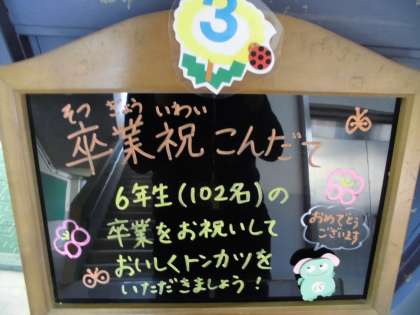 3
そつ ぎょう いわい
卒業祝こんだて
6年生(102名)の
卒業をお祝いして
おいしくトンカツを
いただきましょう!
おめでとう
ございます